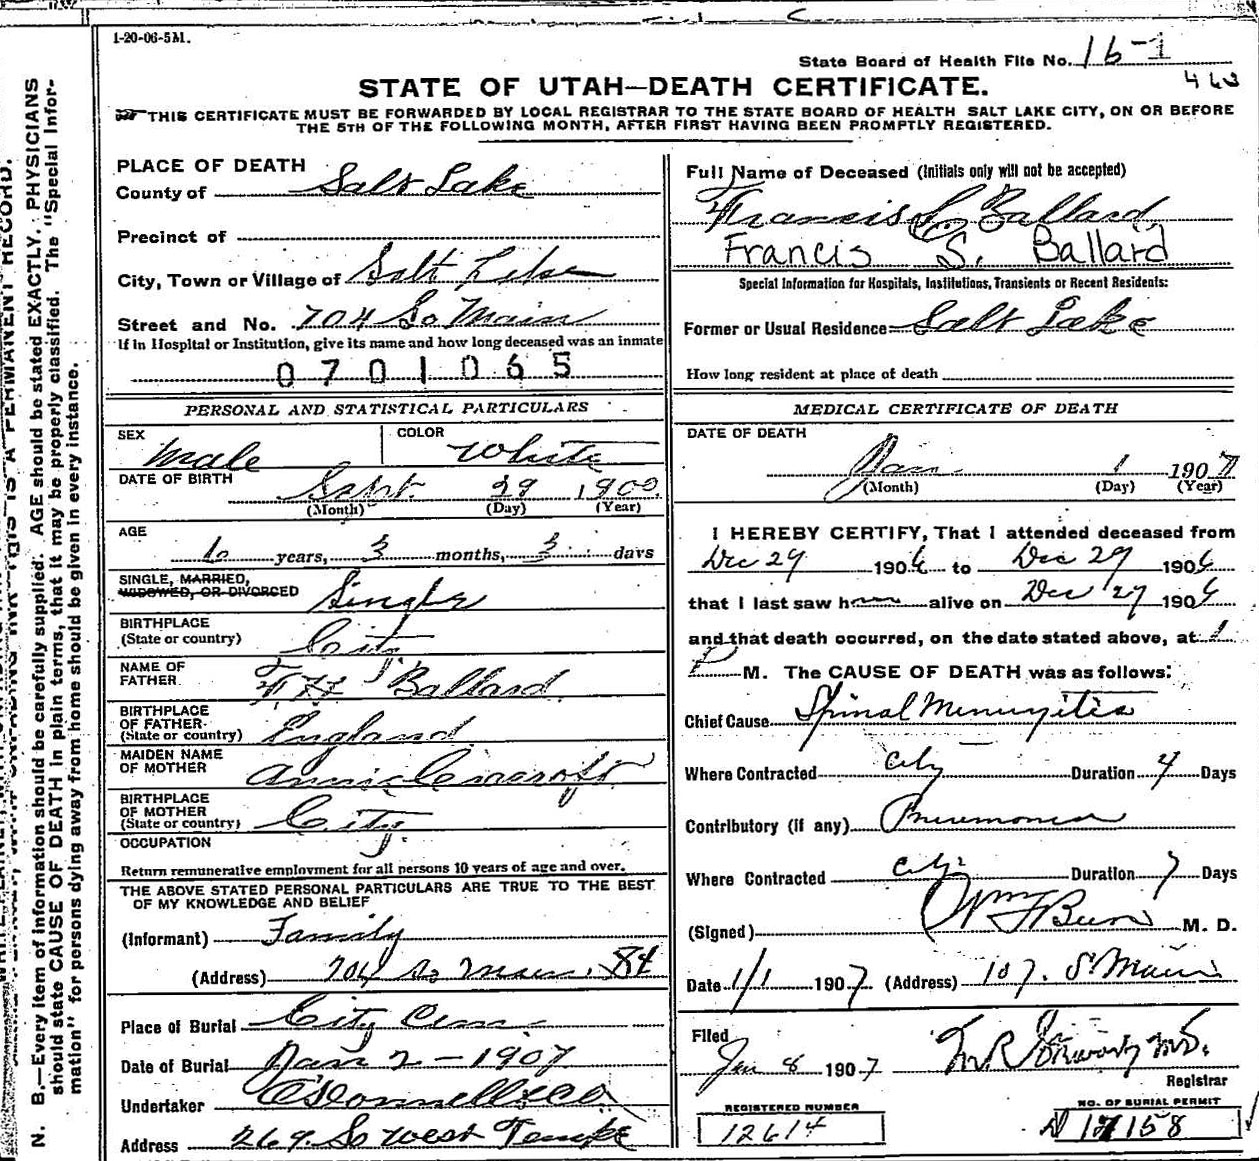 1-20-06-5M.
State Board of Health File No. 16-1
463
STATE OF UTAH—DEATH CERTIFICATE.
THIS CERTIFICATE MUST BE FORWARDED BY LOCAL REGISTRAR TO THE STATE BOARD OF HEALTH SALT LAKE CITY, ON OR BEFORE
THE 5TH OF THE FOLLOWING MONTH, AFTER FIRST HAVING BEEN PROMPTLY REGISTERED.
PLACE OF DEATH
County of Salt Lake
Precinct of
City, Town or Village of Salt Lake
Street and No. 704 So Main
If in Hospital or Institution, give its name and how long deceased was an inmate
0701065
Full Name of Deceased (Initials only will not be accepted)
Francis S Ballard
Francis S. Ballard
Special Information for Hospitals, Institutions, Transients or Recent Residents:
Former or Usual Residence Salt Lake
How long resident at place of death
PERSONAL AND STATISTICAL PARTICULARS
SEX Male COLOR White
DATE OF BIRTH Sept. 29 1900
(Month) (Day) (Year)
AGE 6 years, 3 months, 3 days
SINGLE, MARRIED,
WIDOWED, OR DIVORCED Single
BIRTHPLACE
(State or country) City
NAME OF
FATHER Ballard
BIRTHPLACE
OF FATHER
(State or country) England
MAIDEN NAME
OF MOTHER Annie
BIRTHPLACE
OF MOTHER
(State or country) City
OCCUPATION
Return remunerative employment for all persons 10 years of age and over.
THE ABOVE STATED PERSONAL PARTICULARS ARE TRUE TO THE BEST
OF MY KNOWLEDGE AND BELIEF
(Informant) Family
(Address) 704 So Main St
Place of Burial City Cem
Date of Burial Jan 2-1907
Undertaker O'Donnell & Co
Address 269 So West Temple
MEDICAL CERTIFICATE OF DEATH
DATE OF DEATH
Jan 1 1907
(Month) (Day) (Year)
I HEREBY CERTIFY, That I attended deceased from
Dec 29 1906 to Dec 29 1906
that I last saw h alive on Dec 29 1906
and that death occurred, on the date stated above, at 1
P M. The CAUSE OF DEATH was as follows:
Chief Cause Spinal Meningitis
Where Contracted City Duration 4 Days
Contributory (if any) Pneumonia
Where Contracted City Duration 7 Days
(Signed) Wm F Beer M. D.
Date 1/1 1907 (Address) 107. S. Main
Filed
Jan 8 1907
Registrar
REGISTERED NUMBER
12614
NO. OF BURIAL PERMIT
N. B.—Every item of information should be carefully supplied. AGE should be stated EXACTLY. PHYSICIANS
should state CAUSE OF DEATH in plain terms, that it may be properly classified. The "Special Infor-
mation" for persons dying away from home should be given in every instance.